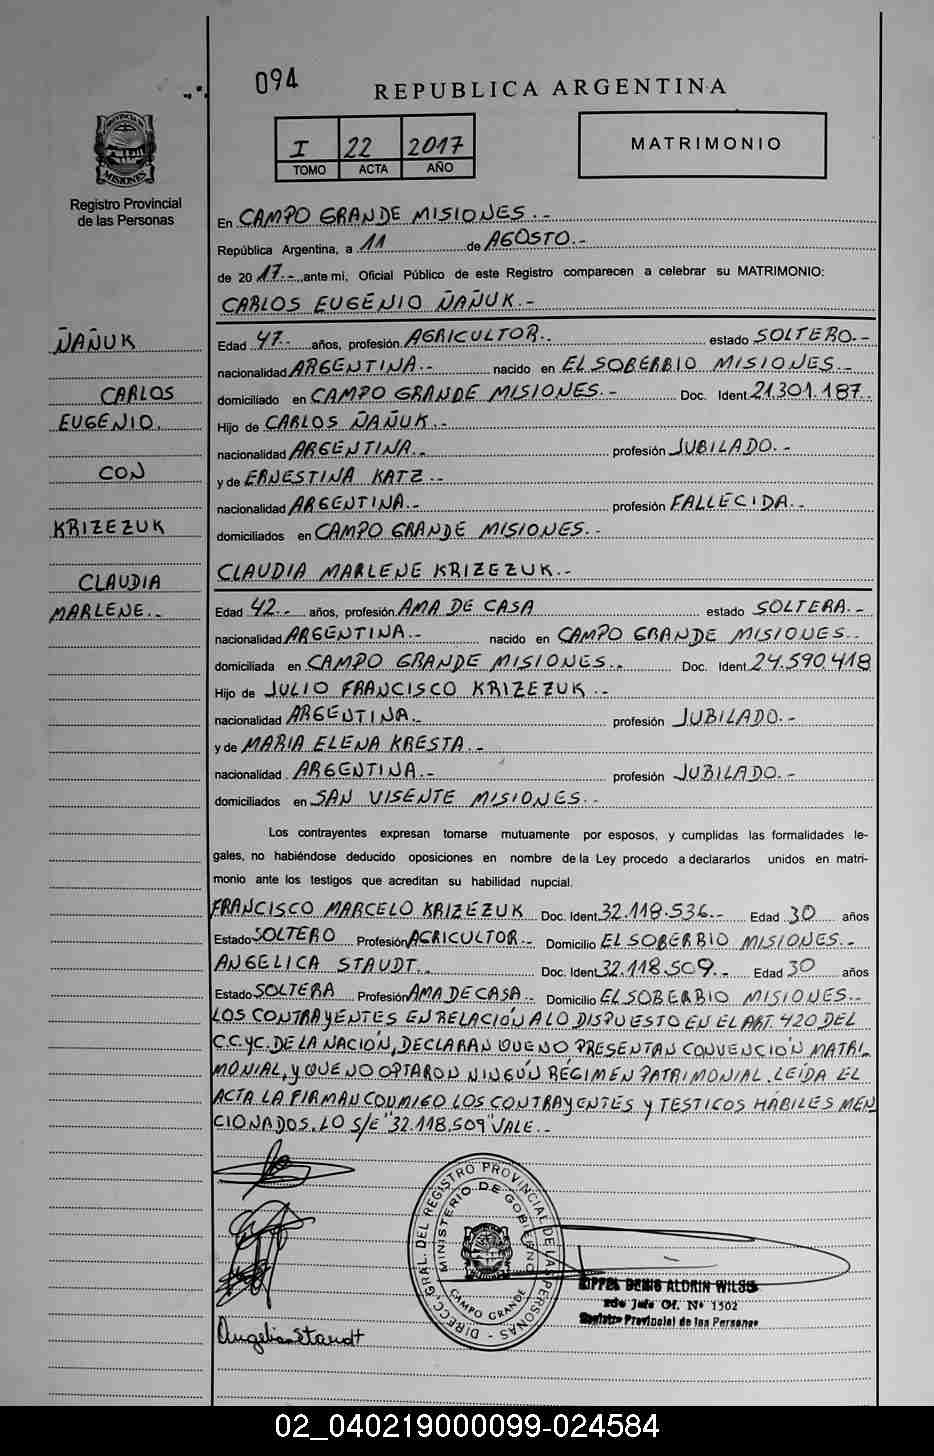 094
REPUBLICA ARGENTINA
I 22 2017
TOMO ACTA AÑO
MATRIMONIO
PROVINCIA DE
MISIONES
Registro Provincial
de las Personas
En CAMPO GRANDE MISIONES.-
República Argentina, a 11 de AGOSTO.-
de 2017.- ante mi, Oficial Público de este Registro comparecen a celebrar su MATRIMONIO:
CARLOS EUGENIO ÑAÑUK.-
ÑAÑUK
CARLOS
EUGENIO.
CON
KRIZEZUK
CLAUDIA
MARLENE.-
Edad 47.- años, profesión AGRICULTOR.. estado SOLTERO.-
nacionalidad ARGENTINA.- nacido en EL SOBERBIO MISIONES.-
domiciliado en CAMPO GRANDE MISIONES.- Doc. Ident. 21.301.187..
Hijo de CARLOS ÑAÑUK.-
nacionalidad ARGENTINA.- profesión JUBILADO.-
y de ERNESTINA KATZ.-
nacionalidad ARGENTINA.- profesión FALLECIDA.-
domiciliados en CAMPO GRANDE MISIONES.-
CLAUDIA MARLENE KRIZEZUK.-
Edad 42.- años, profesión AMA DE CASA estado SOLTERA.-
nacionalidad ARGENTINA.- nacido en CAMPO GRANDE MISIONES.-
domiciliada en CAMPO GRANDE MISIONES.. Doc. Ident. 24.590.418
Hijo de JULIO FRANCISCO KRIZEZUK.-
nacionalidad ARGENTINA.- profesión JUBILADO.-
y de MARIA ELENA KRESTA.-
nacionalidad ARGENTINA.- profesión JUBILADO.-
domiciliados en SAN VISENTE MISIONES.-
Los contrayentes expresan tomarse mutuamente por esposos, y cumplidas las formalidades le-
gales, no habiéndose deducido oposiciones en nombre de la Ley procedo a declararlos unidos en matri-
monio ante los testigos que acreditan su habilidad nupcial.
FRANCISCO MARCELO KRIZEZUK Doc. Ident. 32.118.536.- Edad 30 años
Estado SOLTERO Profesión AGRICULTOR.- Domicilio EL SOBERBIO MISIONES.-
ANGELICA STAUDT.- Doc. Ident. 32.118.509.- Edad 30 años
Estado SOLTERA Profesión AMA DE CASA.. Domicilio EL SOBERBIO MISIONES.-
LOS CONTRAYENTES EN RELACIÓN A LO DISPUESTO EN EL ART. 420 DEL
C.C.YC. DE LA NACIÓN, DECLARAN QUE NO PRESENTAN CONVENCIÓN MATRI-
MONIAL, Y QUE NO OPTARON NINGÚN RÉGIMEN PATRIMONIAL. LEÍDA EL
ACTA LA FIRMAN CONMIGO LOS CONTRAYENTES Y TESTIGOS HÁBILES MEN
CIONADOS. LO S/E "32.118.509" VALE.-
DIRECC. GRAL. DEL REGISTRO PROVINCIAL DE LAS PERSONAS
MINISTERIO DE GOBIERNO
CAMPO GRANDE
DENIS ALDRIN WILSO
2do Jefe Of. Nº 1502
Registro Provincial de las Personas
Angelica Staudt
02_040219000099-024584